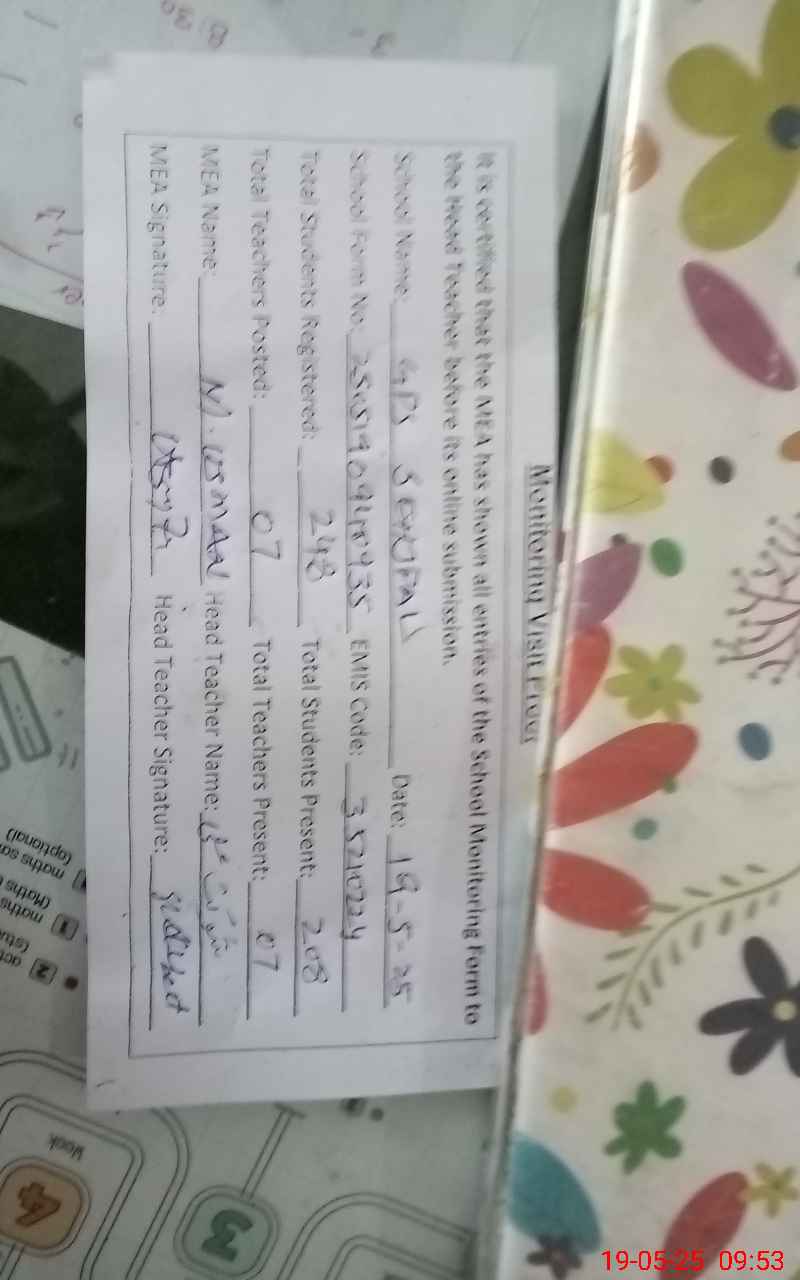 Monitoring Visit Proof
It is certified that the MEA has shown all entries of the School Monitoring Form to
the Head Teacher before its online submission.
School Name: GPS Date: 19-5-25
School Form No: EMIS Code: 35210224
Total Students Registered: 248 Total Students Present: 208
Total Teachers Posted: 07 Total Teachers Present: 07
MEA Name: M. USMAN Head Teacher Name:
MEA Signature: Head Teacher Signature:
maths
(optional)
(Maths
maths
Week
4
3
19-05-25 09:53